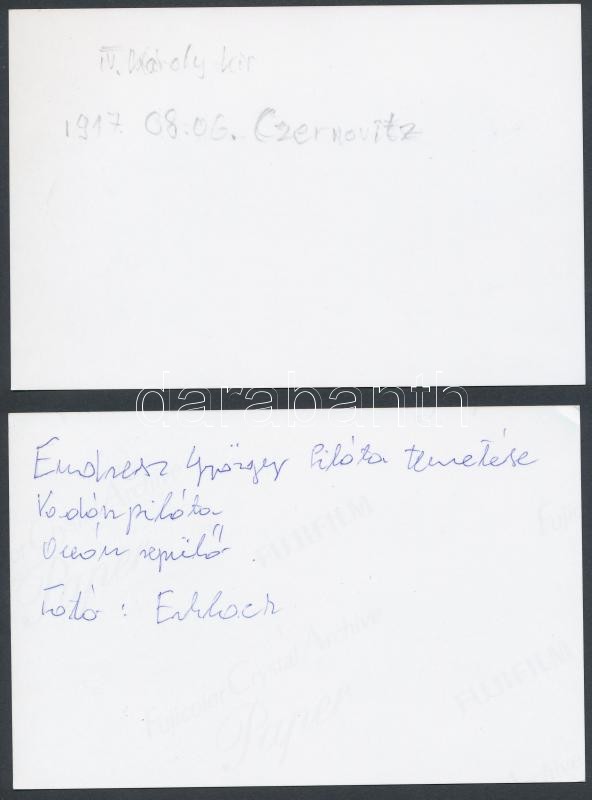 IV. Károly kir
1917. 08.06. Czernovitz
darabanth
Endresz György Pilóta temetése
Vadászpilóta
Óceán repülő.
FUJIFILM
Fotó: Erkloch
Fujicolor Crystal Archive
Paper
FUJIFILM
Archive